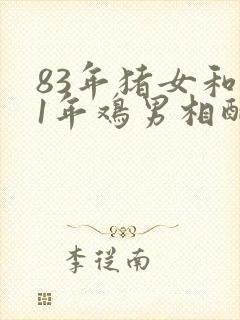 83年猪女和
1年鸡男相配
李从南